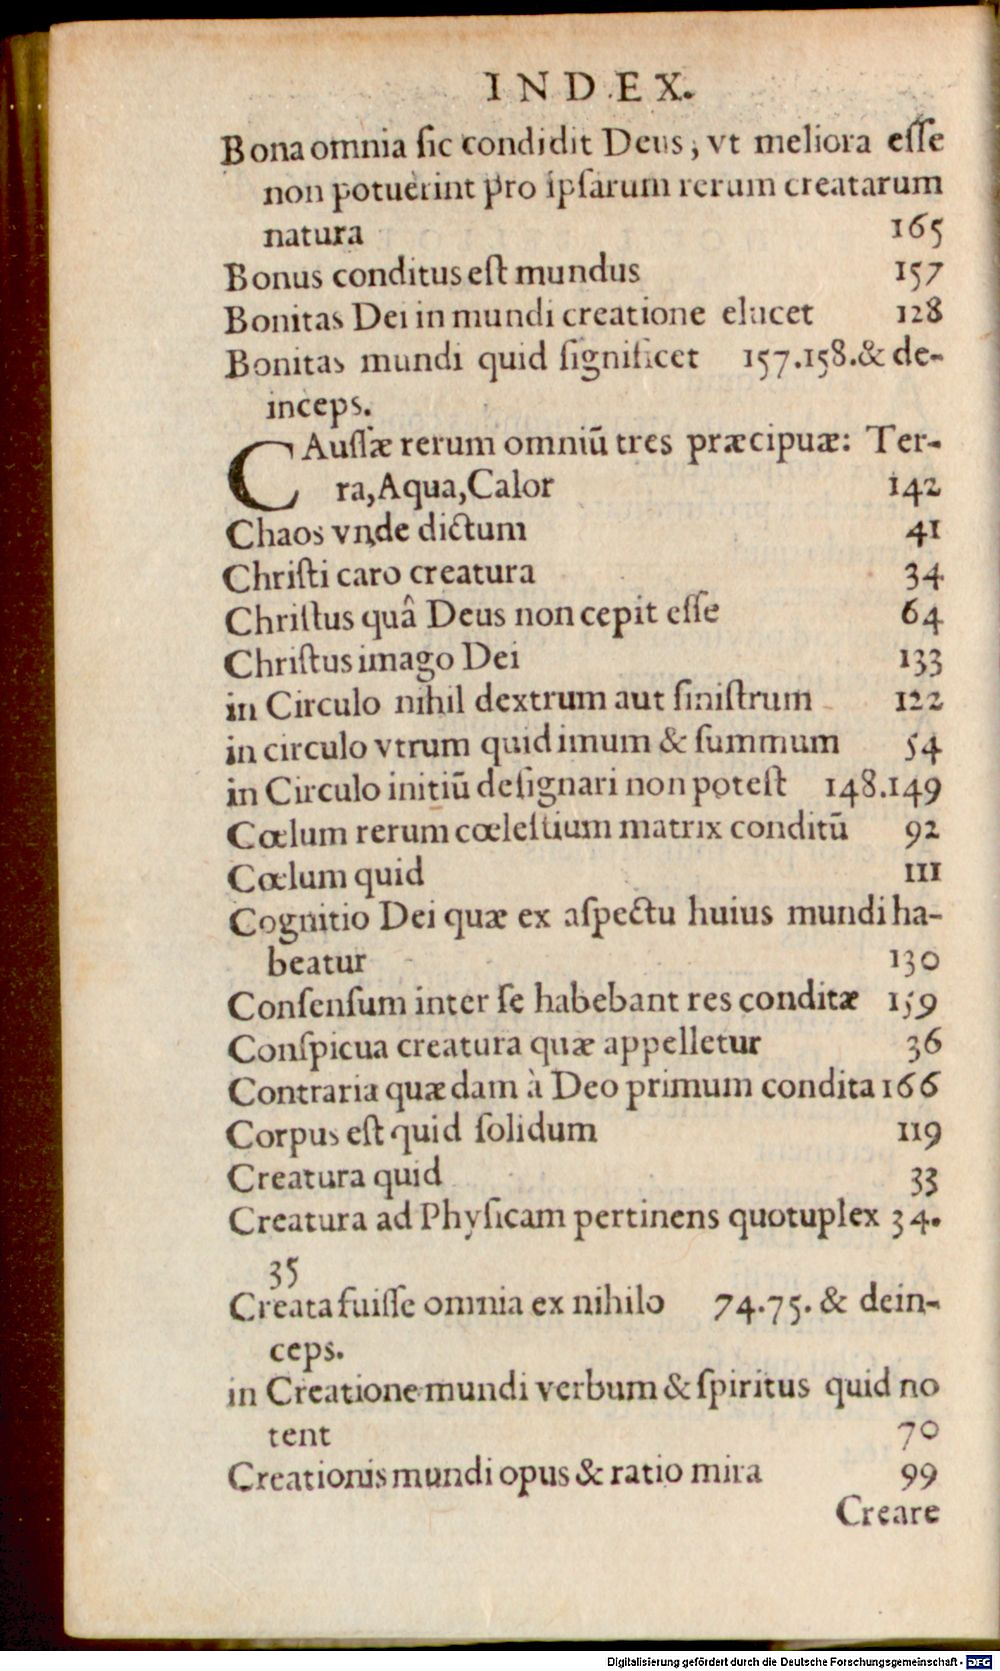 INDEX.
Bona omnia ſic condidit Deus, vt meliora eſſe
non potuerint pro ipſarum rerum creatarum
natura 165
Bonus conditus eſt mundus 157
Bonitas Dei in mundi creatione elucet 128
Bonitas mundi quid ſignificet 157.158.& de-
inceps.
CAuſſæ rerum omniū tres præcipuæ: Ter-
ra, Aqua, Calor 142
Chaos vnde dictum 41
Chriſti caro creatura 34
Chriſtus quâ Deus non cepit eſſe 64
Chriſtus imago Dei 133
in Circulo nihil dextrum aut ſiniſtrum 122
in circulo vtrum quid imum & ſummum 54
in Circulo initiū deſignari non poteſt 148.149
Cœlum rerum cœleſtium matrix conditū 92
Cœlum quid 111
Cognitio Dei quæ ex aſpectu huius mundi ha-
beatur 130
Conſenſum inter ſe habebant res conditæ 159
Conſpicua creatura quæ appelletur 36
Contraria quædam à Deo primum condita 166
Corpus eſt quid ſolidum 119
Creatura quid 33
Creatura ad Phyſicam pertinens quotuplex 34.
35
Creata fuiſſe omnia ex nihilo 74.75. & dein-
ceps.
in Creatione mundi verbum & ſpiritus quid no
tent 70
Creationis mundi opus & ratio mira 99
Creare
Digitalisierung gefördert durch die Deutsche Forschungsgemeinschaft - DFG